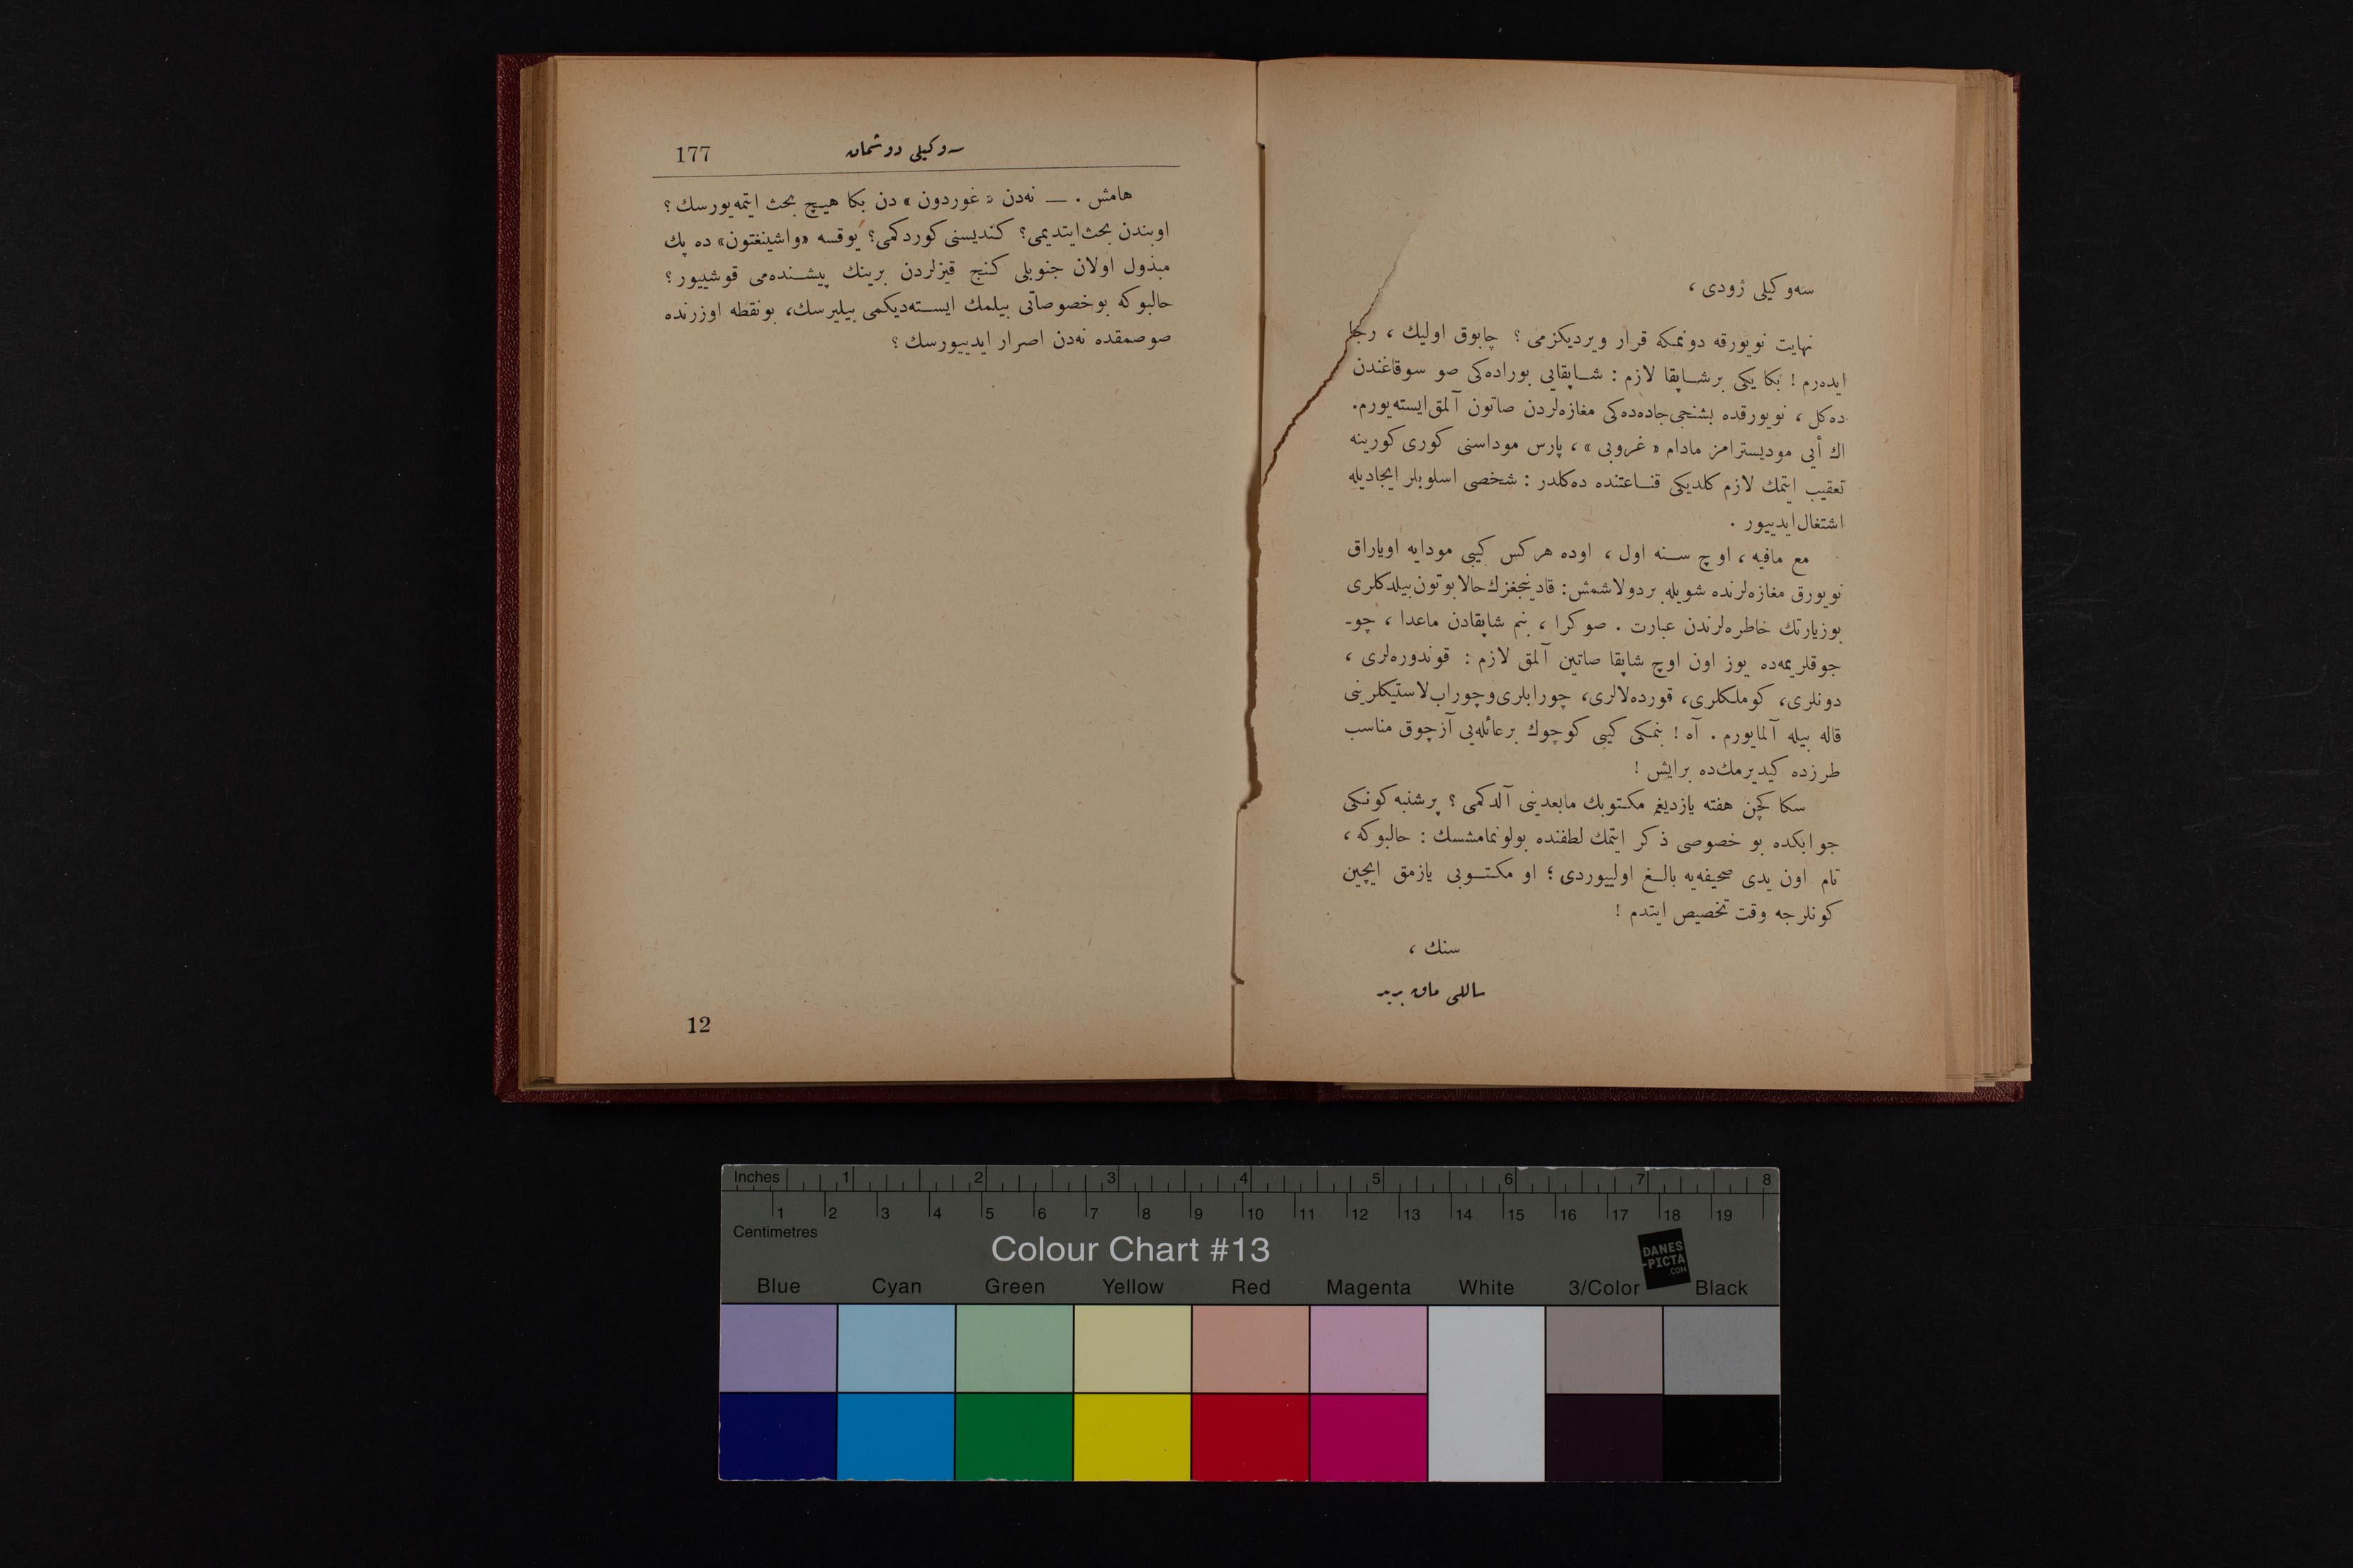 سه‌وكیلی ژودی ،
نهایت نویورقه دونمكه قرار ویردیكزمی ؟ چابوق اولیك ، رجا
ایده‌رم ! بكا یكی برشاپقا لازم : شاپقایی بوراده‌كی صو سوقاغندن
ده‌كل ، نویورقده بشنجی‌جاده‌ده‌كی مغازه‌لردن صاتون آلمق‌ایسته‌یورم.
اك أیی مودیسترامز مادام « غروبی » ، پارس موداسنی كوری كورینه
تعقیب ایتمك لازم كلدیكی قناعتنده ده‌كلدر : شخصی اسلوبلر ایجادیله
اشتغال‌ایدییور .
مع مافیه ، اوچ سنه اول ، اوده هركس كیبی مودایه اویاراق
نویورق مغازه‌لرنده شویله بردولاشمش : قادینجغزك‌حالا‌بوتون‌بیلدكلری
بوزیارتك خاطره‌لرندن عبارت . صوكرا ، بنم شاپقادن ماعدا ، چو-
جوقلریمه‌ده یوز اون اوچ شاپقا صاتین آلمق لازم : قوندوره‌لری ،
دونلری، كوملكلری، قورده‌لالری، چورابلری‌وچوراب‌لاستیكلرینی
قاله بیله آلمایورم . آه ! بنمكی كیبی كوچوك برعائله‌یی آزچوق مناسب
طرزده كیدیرمك‌ده برایش !
سكا كچن هفته یازدیغم مكتوبك مابعدینی آلدكمی ؟ پرشنبه كونكی
جوابكده بو خصوصی ذكر ایتمك لطفنده بولونمامشسك : حالبوكه ،
تام اون یدی صحیفه‌یه بالغ اولییوردی ؛ او مكتوبی یازمق ایچین
كونلرجه وقت تخصیص ایتدم !
سنك ،
ساللی ماق برید
177
سه‌وكیلی دوشمان
هامش . — نه‌دن « غوردون » دن بكا هیچ بحث ایتمه‌یورسك ؟
اوبندن بحث‌ایتدیمی؟ كندیسنی كوردكمی؟ یوقسه «واشینغتون» ده پك
مبذول اولان جنوبلی كنج قیزلردن برینك پیشنده‌می قوشییور ؟
حالبوكه بوخصوصاتی بیلمك ایسته‌دیكمی بیلیرسك، بونقطه اوزرنده
صوصمقده نه‌دن اصرار ایدییورسك ؟
12
Inches 1 2 3 4 5 6 7 8
1 2 3 4 5 6 7 8 9 10 11 12 13 14 15 16 17 18 19
Centimetres
Colour Chart #13
DANES
-PICTA
.COM
Blue Cyan Green Yellow Red Magenta White 3/Color Black